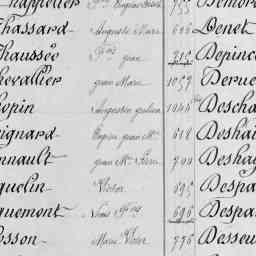 happelier 755 Demor
hassard Auguste Marie 606 Denet
haussée Fçois Jean 315 Depinc
hevallier Jean Marie 1059 Derue
opin Augustin Julien 1046 Descha
ignard Eugène Jean Mie 618 Deshai
nnault Jean Mie Pierre 700 Deshay
quelin Victor 595 Despa
quemont Louis Fçois 696 Despa
sson Marie Victor 776 Desseu